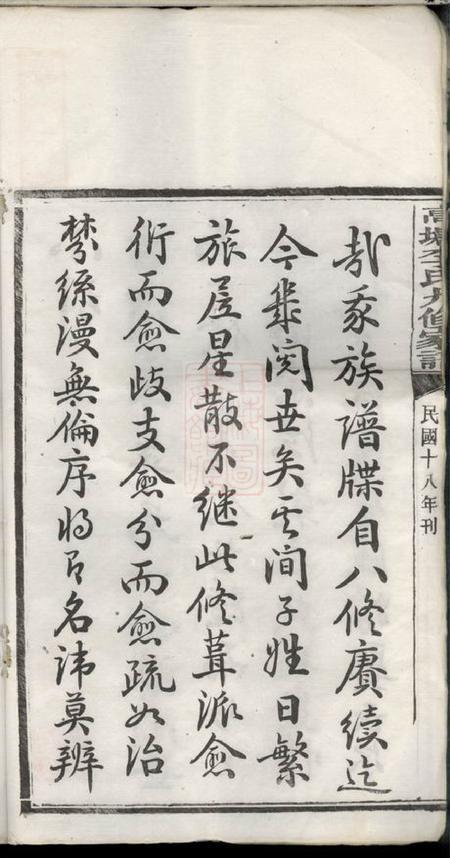 高城李氏九修家譜
民國十八年刊
哉我族譜牒自八修賡續迄
今幾閱世矣其間子姓日繁
旅居星散不繼此修葺派愈
衍而愈歧支愈分而愈疏如治
棼絲漫無倫序將有名諱莫辨